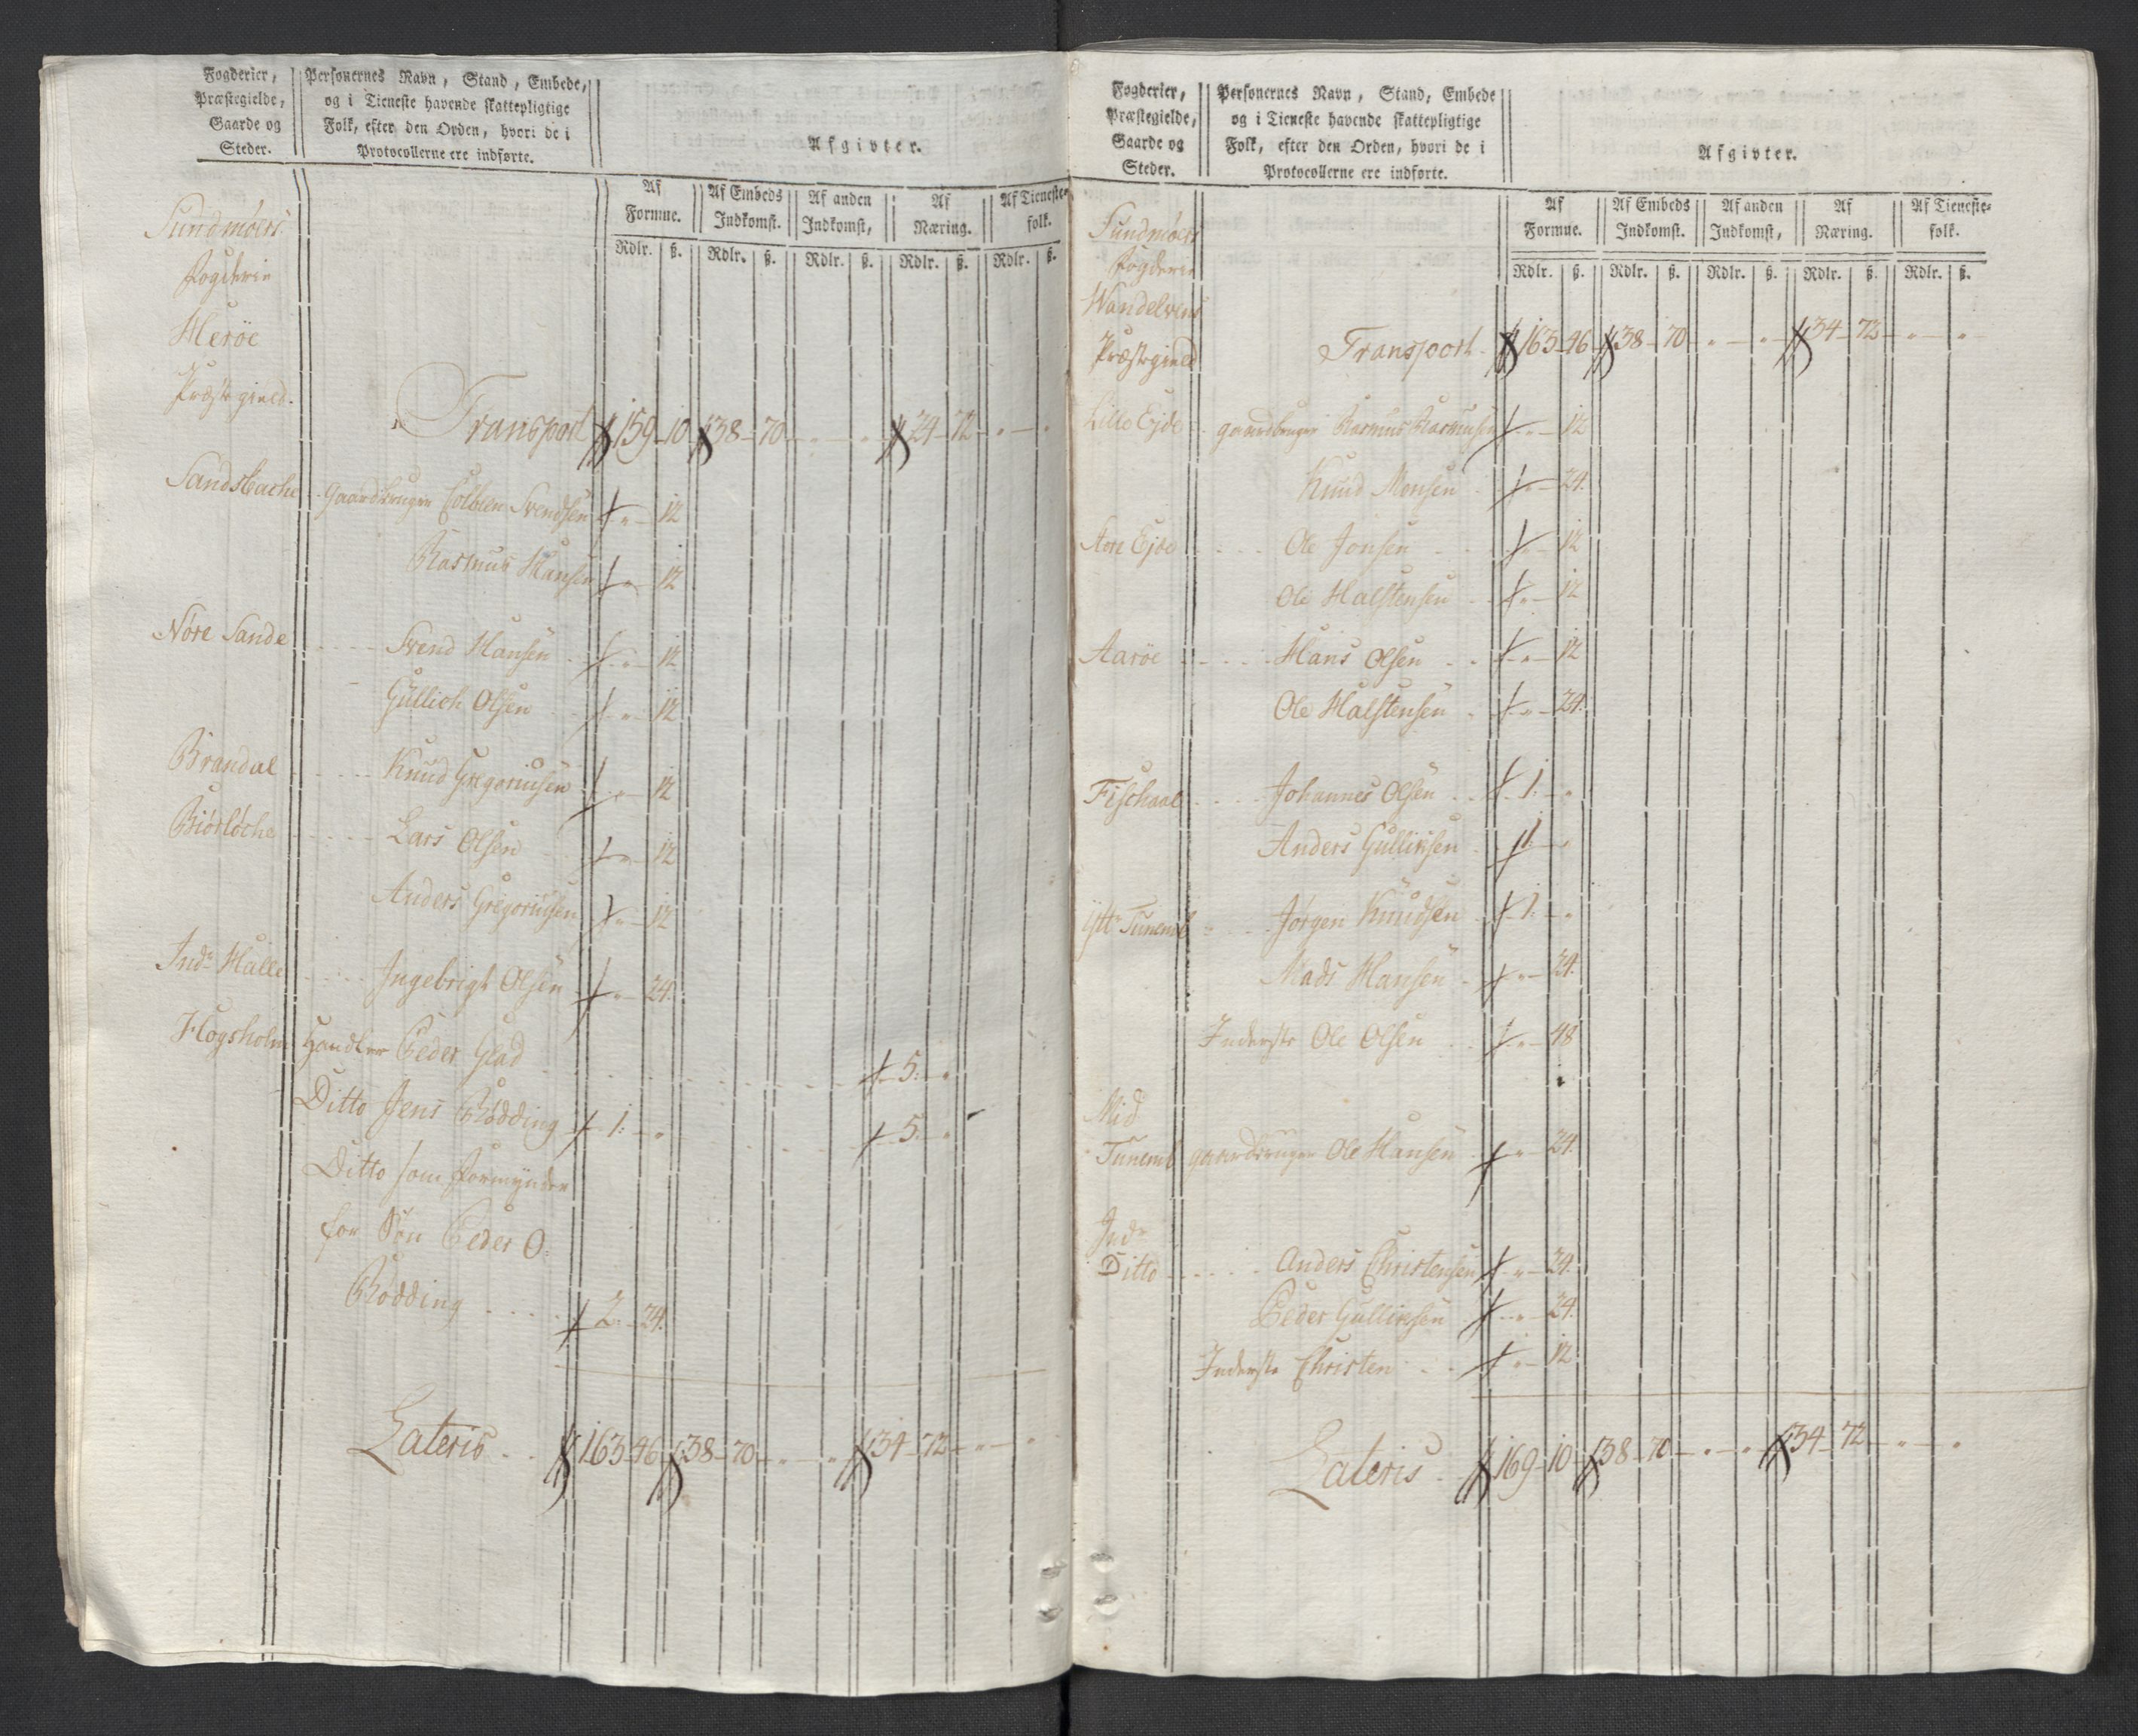 Fogderier, Præstegielde, Gaarde og Steder.
Personernes Navn, Stand, Embede, og i Tieneste havende skattepligtige Folk, efter den Orden, hvori de i Protocollerne ere indførte.
Afgivter.
Af Formue. Af Embeds Indkomst. Af anden Indkomst, Af Næring. Af Tieneste-folk.
Rdlr. ß. Rdlr. ß. Rdlr. ß. Rdlr. ß. Rdlr. ß.
Sundmøers
Fogderie
Heröe
Præstegield.
Transport 159 - 10 38 - 70 - " - " 24 - 72 - " - "
Sandsbache - gaardbruger Colblen Svendsen " - 12
Rasmus Hansen " - 12
Nöre Sande - - - - Svend Hansen " - 12
Gullich Olsen " - 12
Brandal - - - - Knud Gregoriusen " - 12
Biörløche - - - - Lars Olsen " - 12
Anders Gregoriusen " - 12
Indr Halle - - - - Ingebrigt Olsen " - 24.
Flogsholm Handler Peder Glad 5: - "
Ditto Jens Rödding 1: - " 5: - "
Ditto som Formynder
for Søn Peder O:
Rödding - - - - 2: - 24.
Lateris - - 163 - 46 38 - 70 - " - " 34 - 72 - " - "
Fogderier, Præstegielde, Gaarde og Steder.
Personernes Navn, Stand, Embede og i Tieneste havende skattepligtige Folk, efter den Orden, hvori de i Protocollerne ere indførte.
Afgivter.
Af Formue. Af Embeds Indkomst. Af anden Indkomst, Af Næring. Af Tieneste-folk.
Rdlr. ß. Rdlr. ß. Rdlr. ß. Rdlr. ß. Rdlr. ß.
Sundmøers
Fogderie
Wandelvens
Præstegield Transport - 163 - 46 38 - 70 - " - " 34 - 72 - " - "
Lille Ejde - gaardbruger Rasmus Rasmusen " - 12
Knud Monsen - " - 24.
Aore Ejde - - - - Ole Jonsen - - " - 12
Ole Halstensen - " - 12
Aaröe - - - - Hans Olsen - - " - 12
Ole Halstensen - " - 24.
Fischaal - - - - Johannes Olsen - - 1: - "
Anders Gullichsen - 1: - "
Ytte Tunemb - - - - Jørgen Knudsen 1: - "
Mads Hansen - " - 24.
Inderste Ole Olsen - - " - 48
Mid
Tunemb gaardbruger Ole Hansen " - 24.
Indr
Ditto - - - - Anders Christensen " - 24.
Peder Gullichsen " - 24.
Inderste Christen - - " - 12
Lateris - 169 - 10 38 - 70 - " - " 34 - 72 - " - "